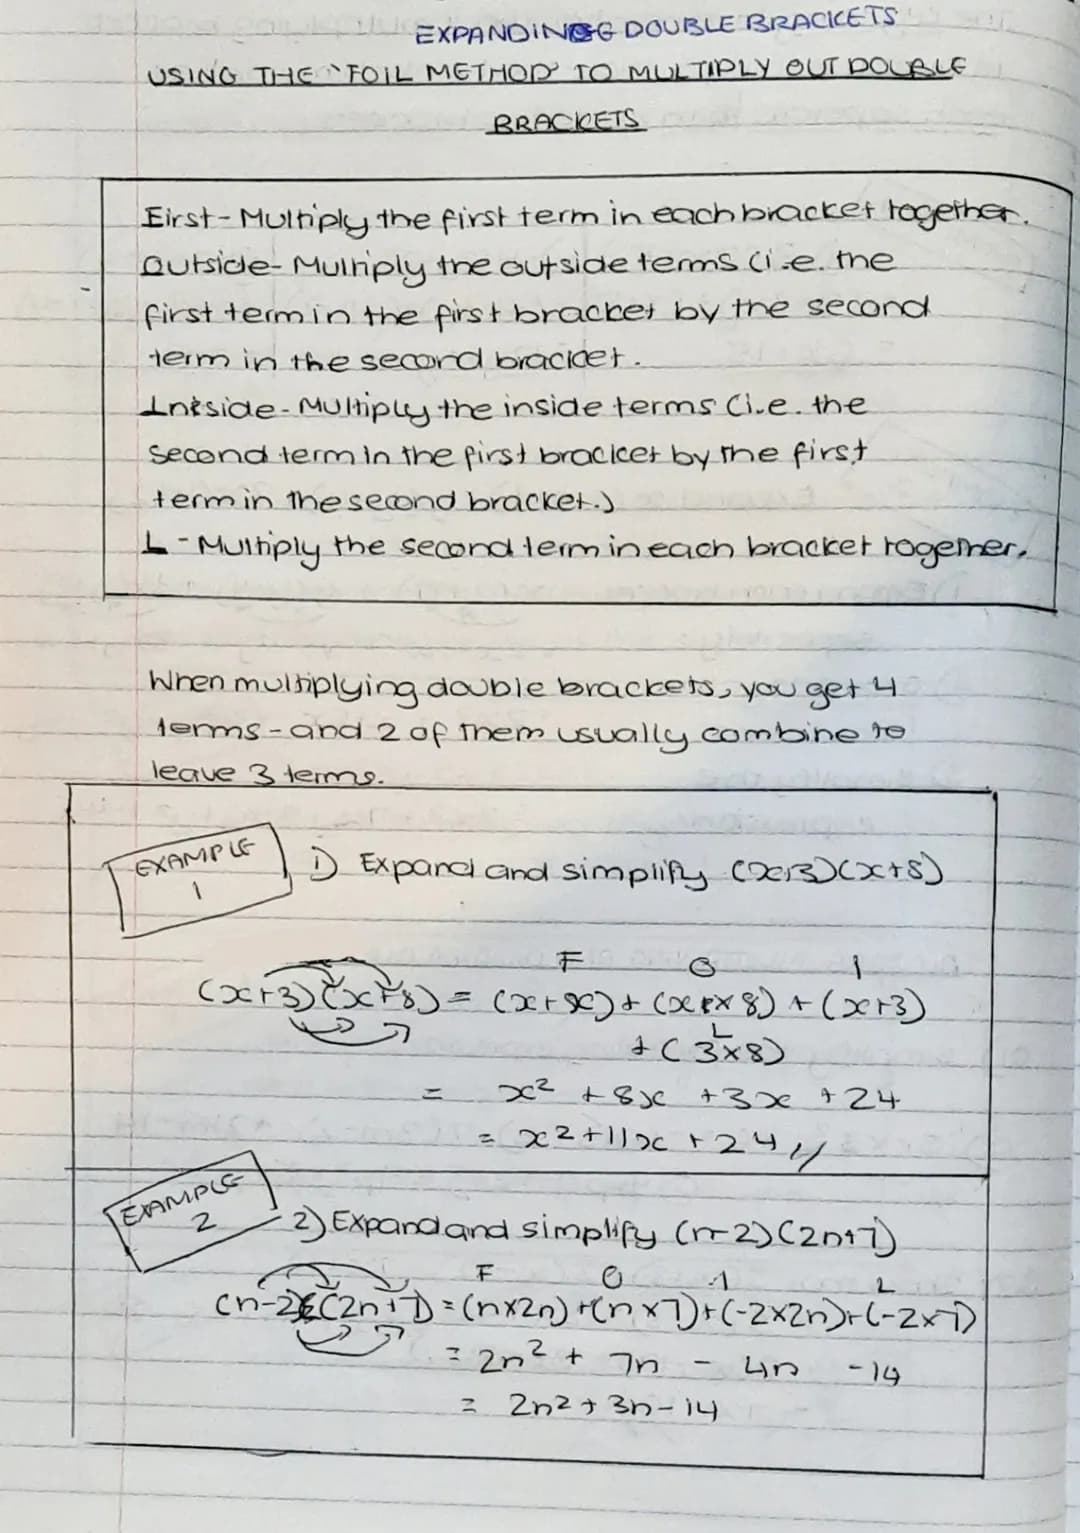 EXPANDING DOUBLE BRACKETS
USING THE "FOIL METHOD' TO MULTIPLY OUT DOUBLE
BRACKETS
First - Multiply the first term in each bracket together.
Outside - Multiply the outside terms (i.e. the
first term in the first bracket by the second
term in the second bracket.
Inside - Multiply the inside terms (i.e. the
second term in the first bracket by the first
term in the second bracket.)
L - Multiply the second term in each bracket together.
When multiplying double brackets, you get 4
terms - and 2 of them usually combine to
leave 3 terms.
EXAMPLE
1
1) Expand and simplify (x+3)(x+8)
F O I
(x+3)(x+8) = (x+x)+(x×8)+(x+3)
L
+(3×8)
= x² + 8x + 3x + 24
= x²+11x + 24
EXAMPLE
2
2) Expand and simplify (n-2)(2n+7)
F O I L
(n-2)(2n+7) = (n×2n)+(n×7)+(-2×2n)+(-2×7)
= 2n² + 7n - 4n - 14
= 2n²+3n-14